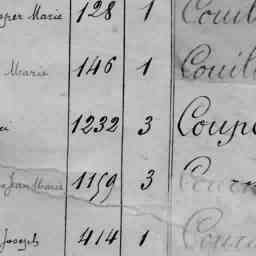 Marie 128 1 Couil
Marie 146 1 Couil
1232 3 Coup
Jean Marie 1159 3 Cour
Joseph 414 1 Cour